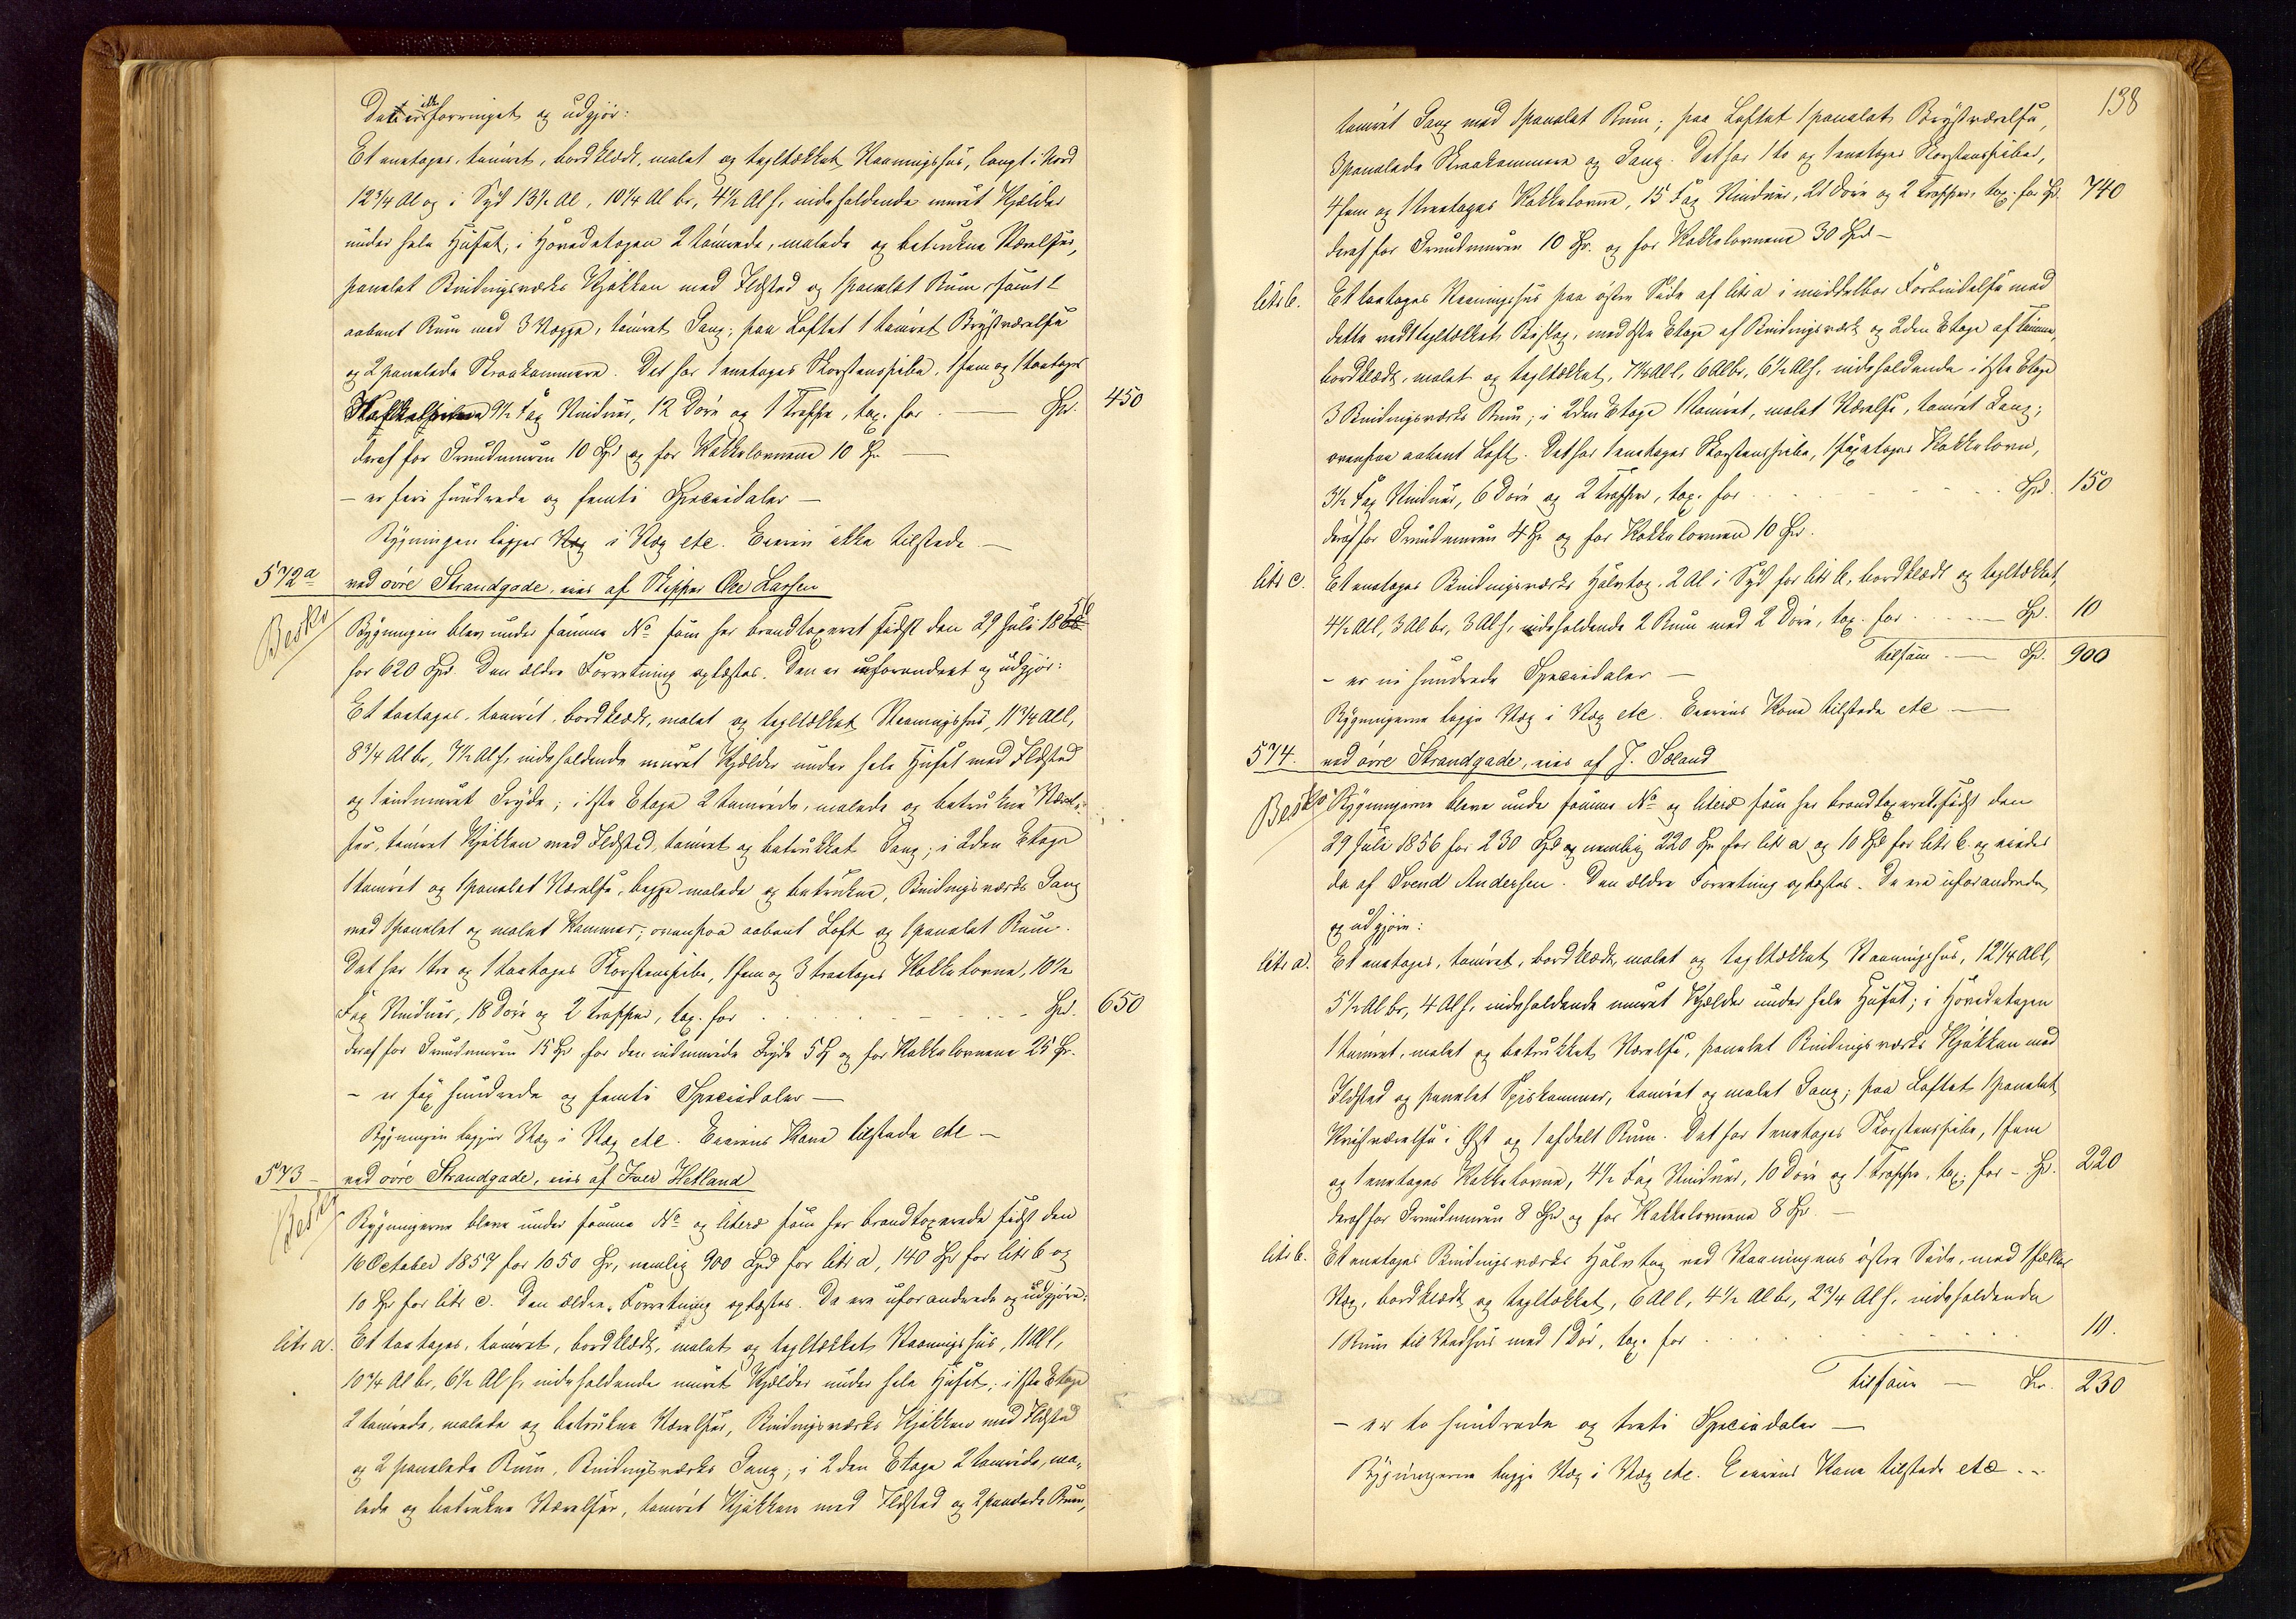 Det er ikke forringet og udgjør:
Et enetages, tømret, bordklædt, malet og tegltækket Vaaningshus, langt i Nord
12 3/4 Al og i Syd 13 1/2 Al, 10 1/4 Al br, 4 1/2 Al h, indeholdende muret Kjælder
under hele Huset; i Hovedetagen 2 tømrede, malede og betrukne Værelser,
panelet Bindingsværks Kjøkken med Ildsted og 1 panelet Rum, samt 1
aabent Rum med 3 Vægge, tømret Gang; paa Loftet 1 tømret Brystværelse
og 2 panelede Skraakammere. Det har 1 enetages Skorstenspibe, 1 fem og 1 toetages
9 1/2 Fag Vinduer, 12 Døre og 1 Trappe, tax. for . — Spd. 450
deraf for Grundmuren 10 Spd og for Kakkelovnene 10 Sp. —
– er fire hundrede og femti Speciedaler –
Bygningen ligger Væg i Væg etc. Eieren ikke tilstede —
572a ved øvre Strandgade, eies af Skipper Ole Larsen
Besko
Bygningen blev under samme No som her brandtaxeret sidst den 29 Juli 1856
for 620 Spd. Den ældre Forretning oplæstes. Den er uforandret og udgjør:
Et toetages, tømret, bordklædt, malet og tegltækket Vaaningshus, 11 3/4 Al l,
8 3/4 Al br, 7 1/2 Al h, indeholdende muret Kjælder under hele Huset med Ildsted
og 1 indmuret Gryde; i 1ste Etage 2 tømrede, malede og betrukne Værel-
ser, tømret Kjøkken med Ildsted, tømret og betrukket Gang; i 2den Etage
1 tømret og 1 panelet Værelse, begge malede og betrukne, Bindingsværks Gang
med 1 panelet og malet Kammer; ovenpaa aabent Loft og 1 panelet Rum.
Det har 1 tre og 1 toetages Skorstenspibe, 1 fem og 3 treetages Kakkelovne, 10 1/2
Fag Vinduer, 18 Døre og 2 Trapper, tax. for . . . . Spd. 650
deraf for Grundmuren 15 Sp for den indmurede Gryde 5 Sp og for Kakkelovnene 25 Sp.
– er sex hundrede og femti Speciedaler —
Bygningen ligger Væg i Væg etc. Eierens Kone tilstede etc –
573 – ved øvre Strandgade, eies af Iver Hetland
Besko
Bygningerne bleve under samme No og literæ som her brandtaxerede sidst den
16 October 1857 for 1050 Sp, nemlig 900 Spd for litr a, 140 Sp for litr b og
10 Sp for litr c. Den ældre Forretning oplæstes. De ere uforandrede og udgjøre:
litr a. Et toetages, tømret, bordklædt, malet og tegltækket Vaaningshus, 11 Al l,
10 3/4 Al br, 6 1/2 Al h, indeholdende muret Kjælder under hele Huset; i 1ste Etage
2 tømrede, malede og betrukne Værelser, Bindingsværks Kjøkken med Ildsted
og 2 panelede Rum, Bindingsværks Gang; i 2den Etage 2 tømrede, ma-
lede og betrukne Værelser, tømret Kjøkken med Ildsted og 2 panelede Rum,
138
tømret Gang med 1 panelet Rum; paa Loftet 1 panelet Brystværelse,
3 panelede Skraakammere og Gang. Det har 1 to og 1 enetages Skorstenspiber,
4 fem og 1 treetages Kakkelovne, 15 Fag Vinduer, 21 Døre og 2 Trapper, tax. for Sp. 740
deraf for Grundmuren 10 Sp. og for Kakkelovnene 30 Spd –
litr b. Et toetages Vaaningshus paa østre Side af litr a i middelbar Forbindelse med
dette ved 1 tegltækket Bislag, med 1ste Etage af Bindingsværk og 2den Etage af Tømmer,
bordklædt, malet og tegltækket, 7 1/4 Al l, 6 Al br, 6 1/2 Al h, indeholdende i 1ste Etage
3 Bindingsværks Rum; i 2den Etage 1 tømret, malet Værelse, tømret Gang;
ovenpaa aabent Loft. Det har 1 enetages Skorstenspibe, 1 sexetages Kakkelovn,
3 1/2 Fag Vinduer, 6 Døre og 2 Trapper, tax. for . . . Spd. 150
deraf for Grundmuren 4 Sp og for Kakkelovnen 10 Sp.
litr c. Et enetages Bindingsværks Halvtag 2 Al i Syd for litr b, bordklædt og tegltækket,
4 1/2 Al l, 3 Al br, 3 Al h, indeholdende 2 Rum med 2 Døre, tax. for . . . Sp. 10
tilsam — Sp. 900
– er ni hundrede Speciedaler –
Bygningerne ligge Væg i Væg etc. Eierens Kone tilstede etc —
574. ved øvre Strandgade, eies af J. Søland
Besko
Bygningerne bleve under samme No og literæ som her brandtaxerede sidst den
29 Juli 1856 for 230 Spd og nemlig 220 Sp for litr a og 10 Spd for litr b. og eiedes
da af Svend Andersen. Den ældre Forretning oplæstes. De ere uforandrede
og udgjøre:
litr a. Et enetages, tømret, bordklædt, malet og tegltækket Vaaningshus, 12 1/4 Al l,
5 1/2 Al br, 4 Al h, indeholdende muret Kjælder under hele Huset; i Hovedetagen
1 tømret, malet og betrukket Værelse, panelet Bindingsværks Kjøkken med
Ildsted og panelet Spiskammer, tømret og malet Gang; paa Loftet 1 panelet
Kvistværelse i Øst og 1 afdelt Rum. Det har 1 enetages Skorstenspibe, 1 fem
og 1 enetages Kakkelovne, 4 1/2 Fag Vinduer, 10 Døre og 1 Trappe, tax. for – Sp. 220
deraf for Grundmuren 8 Spd og for Kakkelovnene 8 Sp. —
litr b. Et enetages Bindingsværks Halvtag ved Vaaningens østre Side, med 1 fælles
Væg, bordklædt og tegltækket, 6 Al l, 4 1/2 Al br, 2 3/4 Al h, indeholdende
1 Rum til Vedhus med 1 Dør, tax. for . . . 10.
tilsam — Sp. 230
– er to hundrede og treti Speciedaler —
Bygningerne ligge Væg i Væg etc. Eierens Kone tilstede etc –